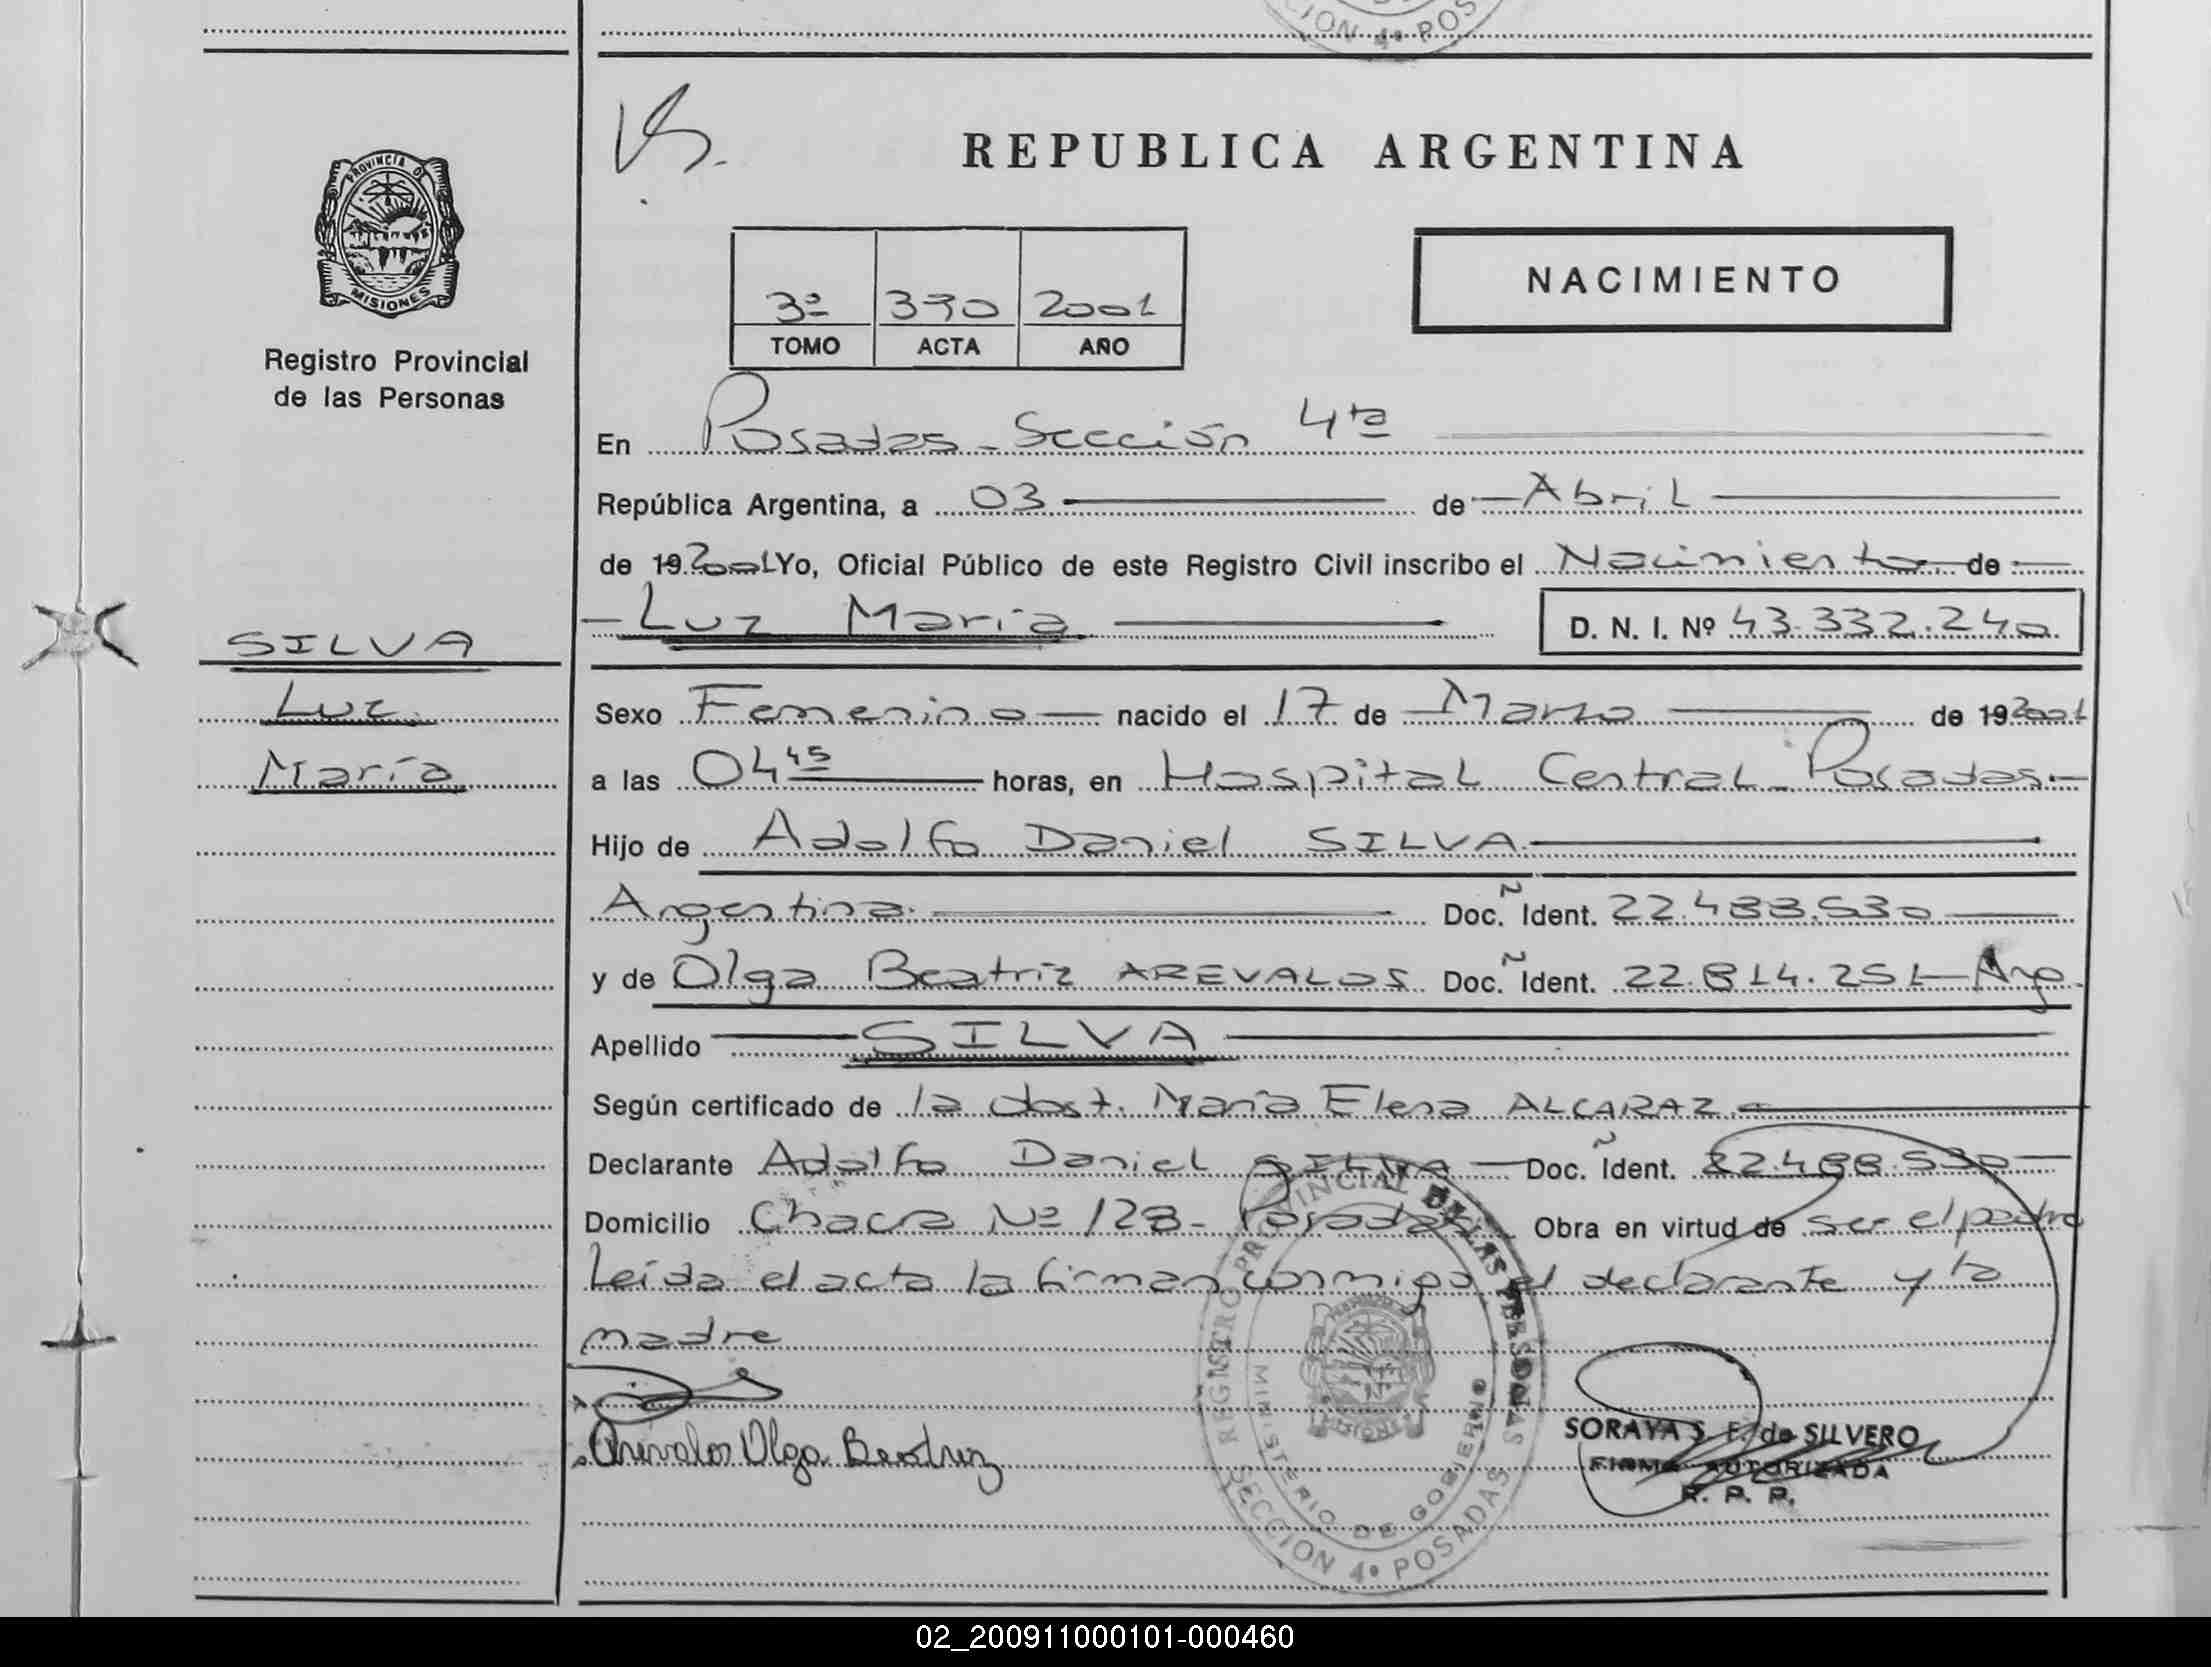 CION 4º POS
REPUBLICA ARGENTINA
PROVINCIA DE
MISIONES
Registro Provincial
de las Personas
3º 390 2001
TOMO ACTA AÑO
NACIMIENTO
En Posadas - Sección 4ta
República Argentina, a 03 de Abril
de 19 2001 Yo, Oficial Público de este Registro Civil inscribo el Nacimiento de
Luz María D. N. I. Nº 43.332.240
SILVA
Luz
María
Sexo Femenino nacido el 17 de Marzo de 19 2001
a las 04 45 horas, en Hospital Central - Posadas
Hijo de Adolfo Daniel SILVA
Argentina Doc. Ident. 22.488.530
y de Olga Beatriz AREVALOS Doc. Ident. 22.814.251 - Arg.
Apellido SILVA
Según certificado de la obst. María Elena ALCARAZ
Declarante Adolfo Daniel SILVA Doc. Ident. 22.488.530
Domicilio Chacra Nº 128 - Posadas Obra en virtud de ser el padre
Leída el acta la firman conmigo el declarante y la
madre
Arevalos Olga Beatriz
REGISTRO PROVINCIAL DE LAS PERSONAS
MINISTERIO DE GOBIERNO
SECCION 4º POSADAS
SORAYA S. F. de SILVERO
FIRMA AUTORIZADA
R. P. P.
02_200911000101-000460